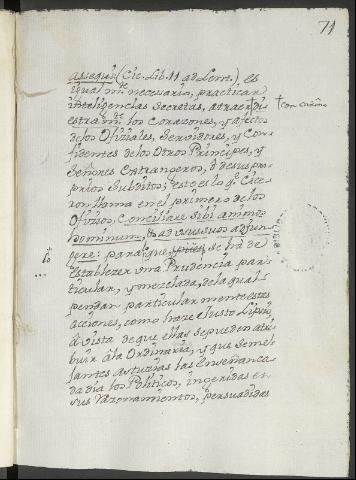 71
assequi (Cic. Lib. 11 ad Lent.), es
igual mte necesario, practicar
inteligencias secretas, atraer di-
estra mte los Corazones, y afectos
+ con cariño
de los Oficiales, Servidores, y Con-
fidentes de los Otros Principes, y
Señores Extrangeros, ó de sus pro-
prios Subditos; esto es lo q Cice-
ron llama en el primero de los
Oficios, Conciliare sibi animos
hominum, & ad usus suos adjun-
gere: para lo que, se há de
establezer una Prudencia par-
ticular, y mezclada, de la qual
pendan particularmente estas
acciones, como haze el Justo Lipsio
á vista de que ellas se pueden atri-
buir á la Ordinaria, y que seme-
jantes astucias las Enseñan ca-
da dia los Políticos, ingeridas en
sus razonamientos, persuadidas